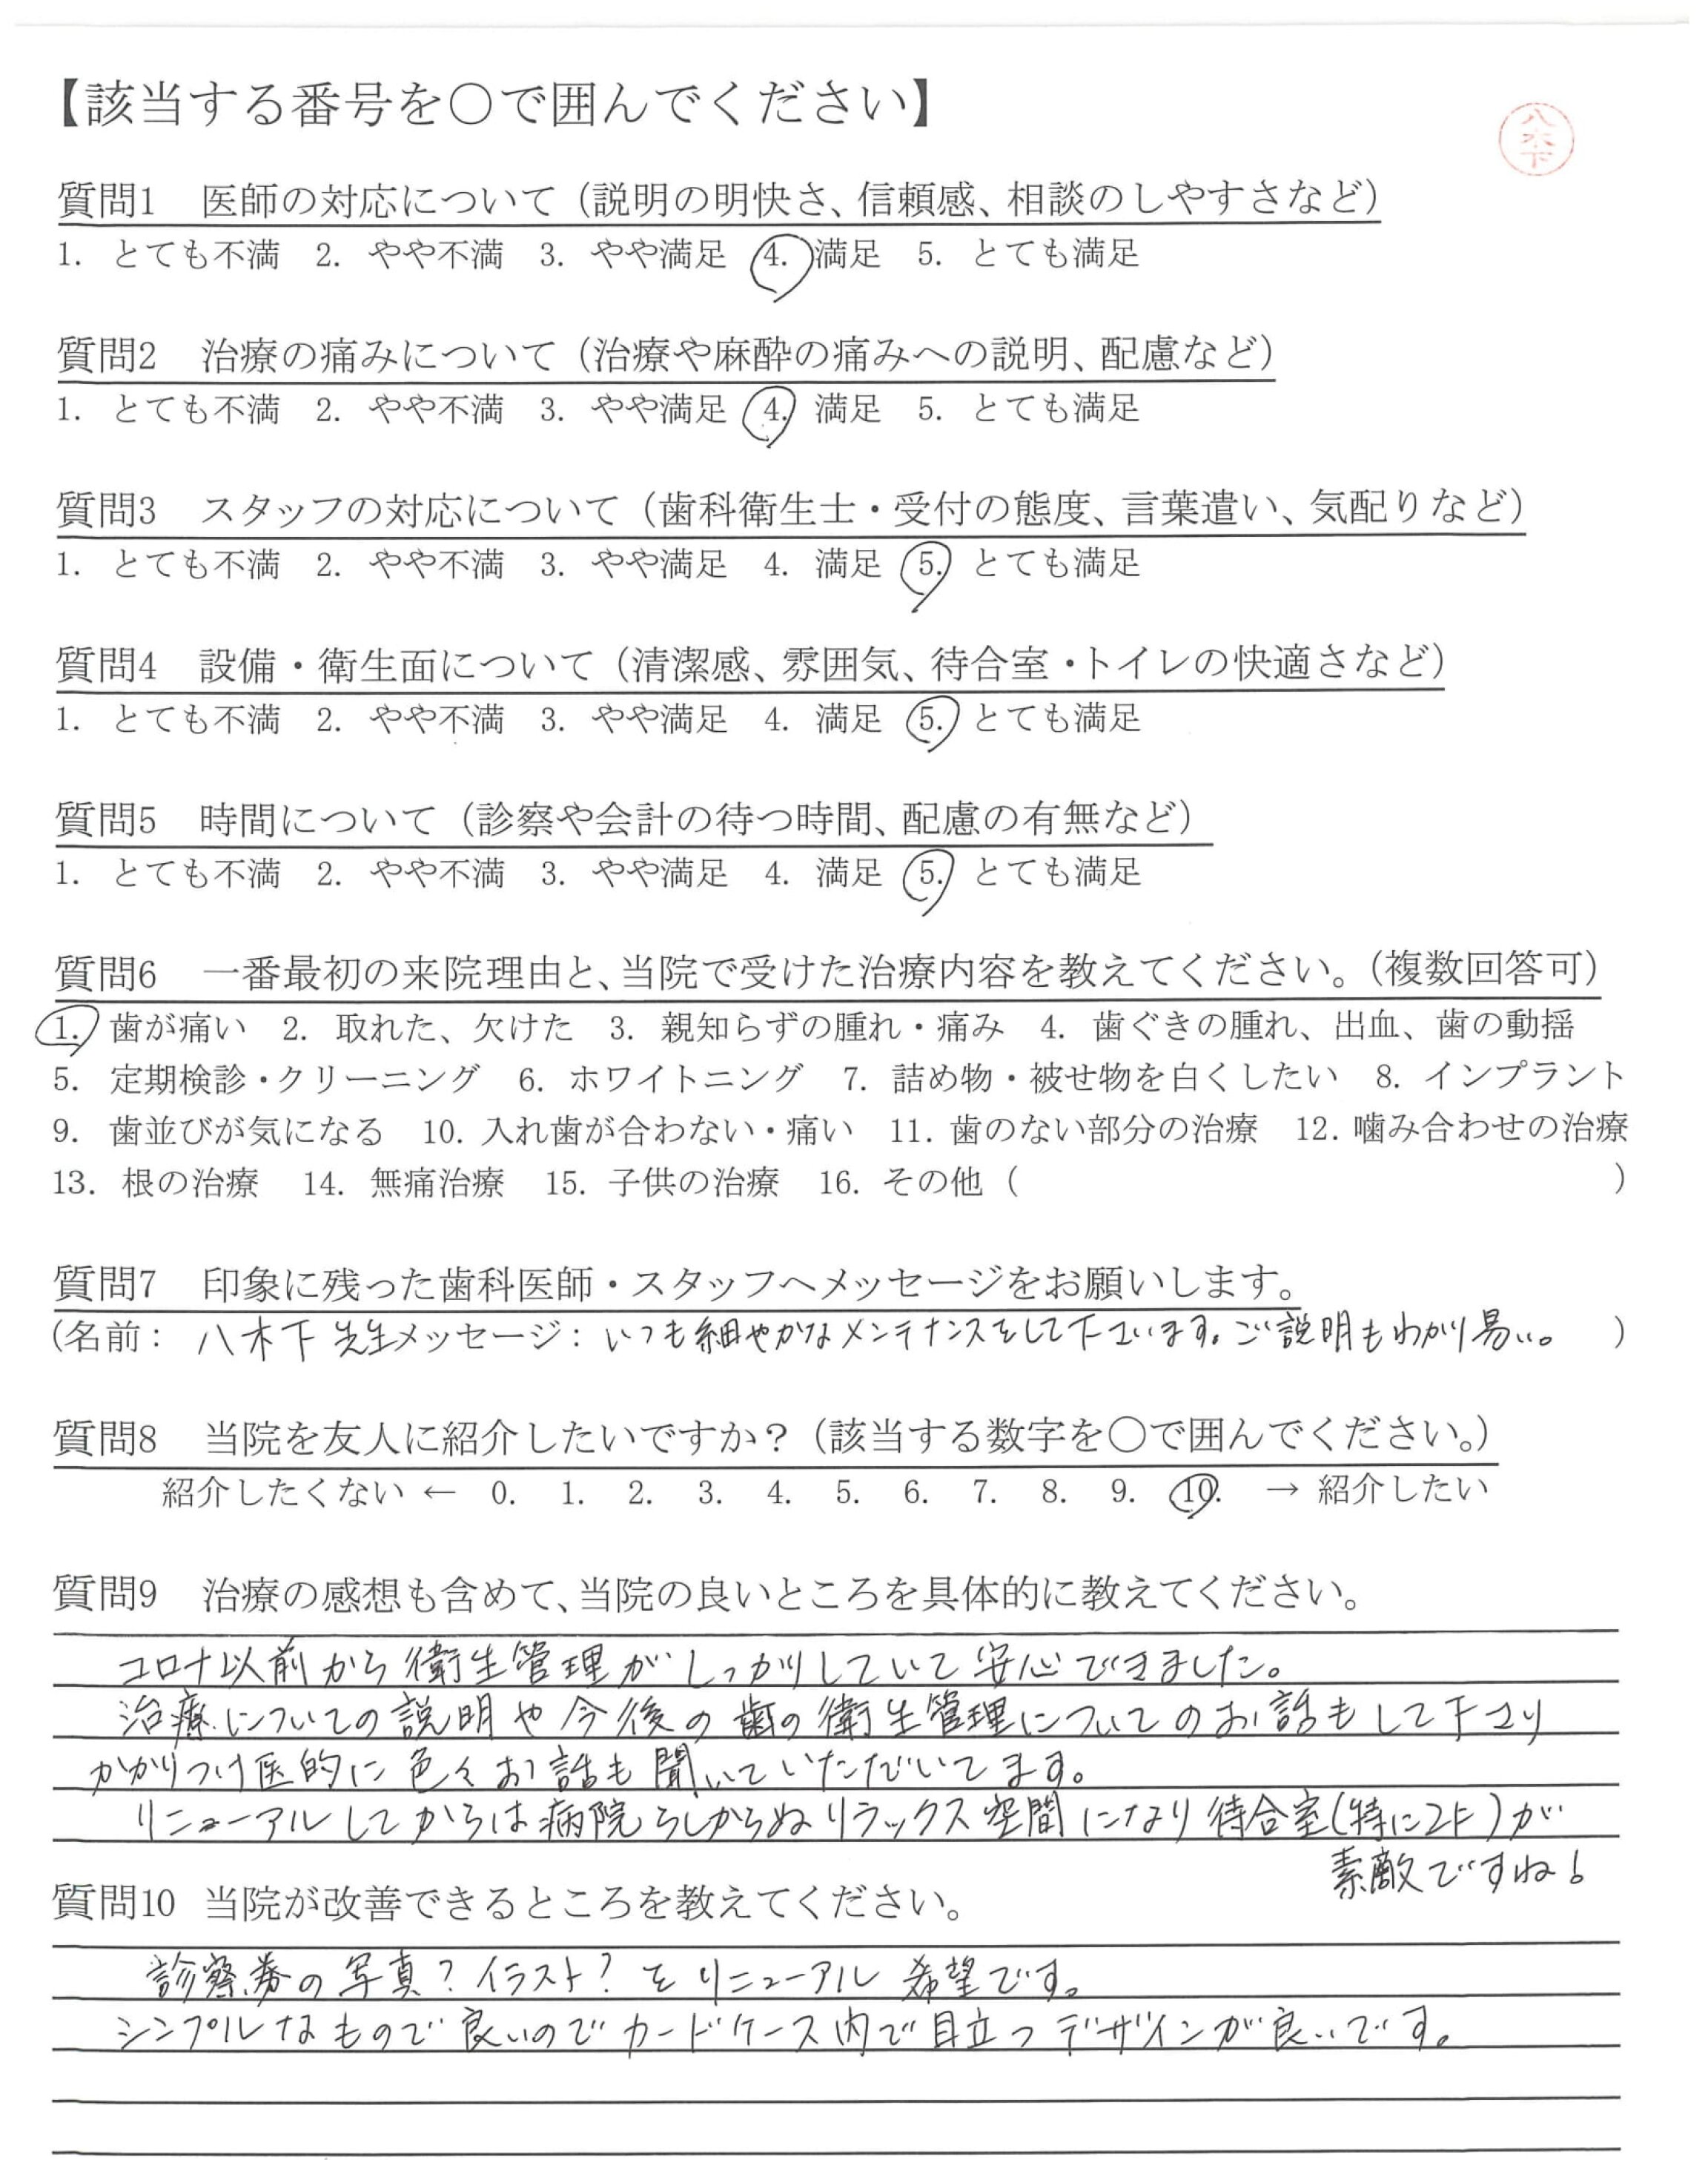 【該当する番号を〇で囲んでください】
八木下
質問1 医師の対応について（説明の明快さ、信頼感、相談のしやすさなど）
1. とても不満 2. やや不満 3. やや満足 4. 満足 5. とても満足
質問2 治療の痛みについて（治療や麻酔の痛みへの説明、配慮など）
1. とても不満 2. やや不満 3. やや満足 4. 満足 5. とても満足
質問3 スタッフの対応について（歯科衛生士・受付の態度、言葉遣い、気配りなど）
1. とても不満 2. やや不満 3. やや満足 4. 満足 5. とても満足
質問4 設備・衛生面について（清潔感、雰囲気、待合室・トイレの快適さなど）
1. とても不満 2. やや不満 3. やや満足 4. 満足 5. とても満足
質問5 時間について（診察や会計の待つ時間、配慮の有無など）
1. とても不満 2. やや不満 3. やや満足 4. 満足 5. とても満足
質問6 一番最初の来院理由と、当院で受けた治療内容を教えてください。（複数回答可）
1. 歯が痛い 2. 取れた、欠けた 3. 親知らずの腫れ・痛み 4. 歯ぐきの腫れ、出血、歯の動揺
5. 定期検診・クリーニング 6. ホワイトニング 7. 詰め物・被せ物を白くしたい 8. インプラント
9. 歯並びが気になる 10. 入れ歯が合わない・痛い 11. 歯のない部分の治療 12. 噛み合わせの治療
13. 根の治療 14. 無痛治療 15. 子供の治療 16. その他（ ）
質問7 印象に残った歯科医師・スタッフへメッセージをお願いします。
（名前： 八木下 先生メッセージ：いつも細やかなメンテナンスをして下さいます。ご説明もわかり易い。 ）
質問8 当院を友人に紹介したいですか？（該当する数字を〇で囲んでください。）
紹介したくない ← 0. 1. 2. 3. 4. 5. 6. 7. 8. 9. 10. → 紹介したい
質問9 治療の感想も含めて、当院の良いところを具体的に教えてください。
コロナ以前から衛生管理がしっかりしていて安心できました。
治療についての説明や今後の歯の衛生管理についてのお話もして下さり
かかりつけ医的に色々お話も聞いていただいてます。
リニューアルしてからは病院らしからぬリラックス空間になり待合室(特に2F)が
素敵ですね！
質問10 当院が改善できるところを教えてください。
診察券の写真？イラスト？をリニューアル希望です。
シンプルなもので良いのでカードケース内で目立つデザインが良いです。